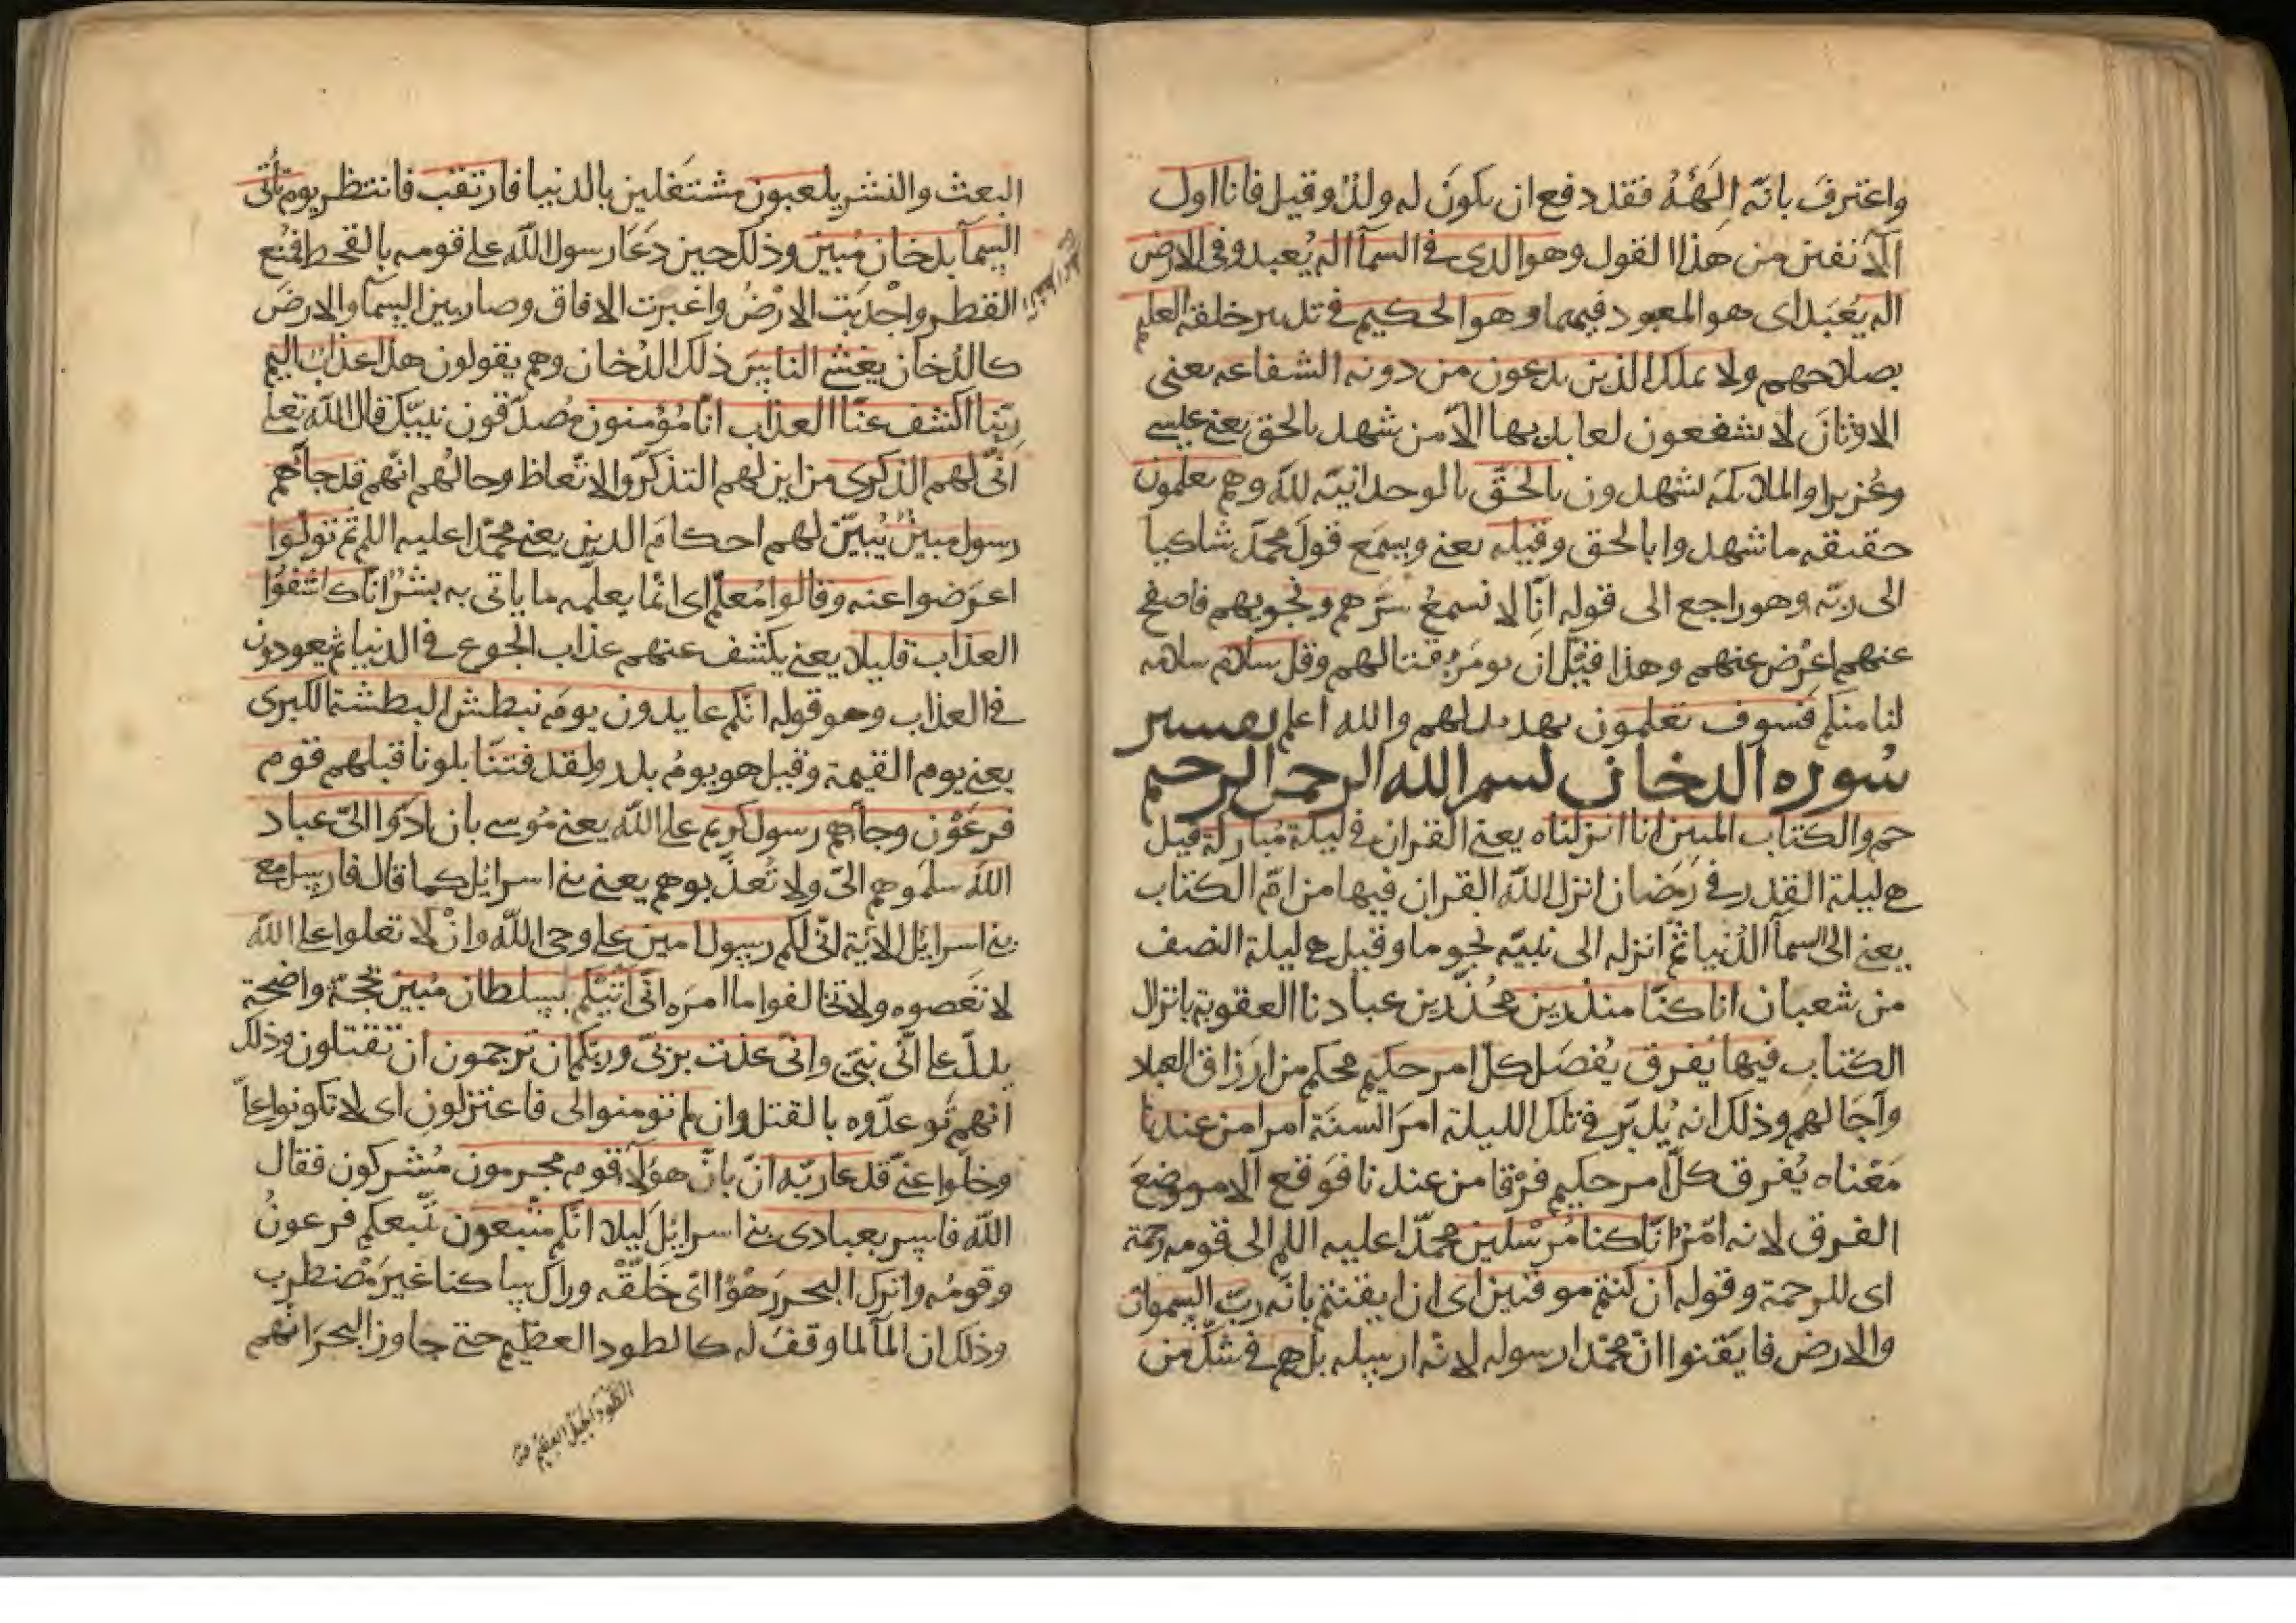 واعترف بانّه الهَهُ فقد دفع ان يكونَ له ولدٌ وقيل فانا اول
الآنفين من هذا القول وهو الذى فى السمآ اله يُعبد وفى الارض
اله يُعبَد اى هو المعبود فيهما وهو الحكيم فى تدبير خلقه العليم
بصلاحهم ولا يملك الذين يدعون من دونه الشفاعه يعنى
الاوثانَ لا يشفعون لعابديها الّا من شهد بالحق يعنى عيسى
وعُزيرا والملائكه يشهدون بالحَقّ بالوحدانيّه لله وهم يعلمون
حقيقه ما شهدوا بالحق وقيله يعنى ويسمَع قولَ محمّد شاكيا
الى ربّه وهو راجع الى قوله انّا لا نسمعُ سرَّهم ونجويهم فاصفح
عنهم اعْرض عنهم وهذا قبْل ان يومَرَ بقتالهم وقل سلام سلامه
لنا منكم فسوف تعلمون تهديد لهم والله اعلم تفسير
سُوره الدخان بسم الله الرحمن الرحيم
حم والكتاب المبين انا انزلناه يعنى القران فى ليلة مُباركة قيل
هى ليلة القدر فى رَمَضان انزل الله القران فيها من امّ الكتاب
يعنى الى السمآ الدُنيا ثمّ انزله الى نبيّه نجوما وقيل هى ليلة النصف
من شعبان انا كنّا منذرين محُذّرين عبادنا العقوبة بانزال
الكتاب فيها يُفرق يُفصَل كلّ امر حكيم محكم من ارَزاق العباد
وآجَالهم وذلك انه يُدبّر فى تلك الليلة امرَ السنَة امرا من عندنا
مَعْناه يُفرق كلّ امر حكيم فرْقا من عندنا فوَقع الامر موضعَ
الفرق لانه امّرٌ انّا كنا مُرْسلين محمّدا عليه اللم الى قومه رحمة
اى للرحمة وقوله ان كنتم موقنين اى ان ايقنتم بانّه ربّ السموات
والارض فايَقنوا انّ محمّدا رسوله لانّه ارسله بل هم فى شكّ من
البعث والنشر يلعبون مشتَغلين بالدنيا فارتقب فانتظر يوم تأتى
السمآ بدخان مُبين وذلك حين دَعَا رسول الله على قومه بالقحط فمُنع
القطر واجْدبَت الارْضُ واغبرت الافاق وصار بين السمآ والارضَ
كالدُخان يغشى الناسَ ذلك الدُخان وهم يقولون هذا عذاب اليم
ربّنا اكشف عنّا العذاب انّا مُؤمنون مُصدّقون نبيّك قال الله تعلى
انّى لهم الذكرى من اين لهم التذكّر والاتّعاظ وحالُهم انّهم قد جآهم
رسول مبينٌ يُبيّن لهم احكامَ الدين يعنى محمّدا عليه اللم ثم تولّوا
اعرَضوا عنه وقالوا مُعلّم اى انّما يعلّمه ما ياتى به بشرٌ انّا كاشفُوا
العذاب قليلا يعنى يكشف عنهم عذاب الجوع فى الدنيا ثم يعودون
فى العذاب وهو قوله انّكم عايدون يومَ نبطش البطشة الكبرى
يعنى يوم القيمة وقيل هو يومُ بدر ولقد فتنّا بلونا قبلهم قوم
فرعَوْن وجآهم رسول كريم على الله يعنى مُوسى بان ادّوا الىّ عباد
الله سلمَوهم الىّ ولا تُعذّبوهم يعنى بنى اسرائل كما قال فارسل مع
بنى اسرائل الآية انّى لكم رسول امين على وحى الله وانْ لا تعلوا على الله
لا تَعصوه ولا تخالفوا ما امرَه انّى اتيكم بسلطان مُبين بحجّة واضحة
يدلّ على انّى نبىّ وانّى عذت بربّى وربّكم ان ترجمون ان تقتلون وذلك
انهم تَوعدّوه بالقتل وان لم تومنوا لى فاعتزلون اى لا تكونوا علىّ
وخلّوا عنّى فدعا ربّه انّ بانّ هؤلآ قوم مجرمون مُشركون فقال
الله فاسر بعبادى بنى اسرائل ليلا انّكم متّبعون يتّبعكم فرعونُ
وقومُه واترك البحر رَهْوًا اى خَلّفْه وراك ساكنا غيرَ مُضطرب
وذلك ان المآ لما وقفَ له كالطود العظيم حتى جاوز البحرَ انهم
الطَّوْد الجبل العظيم